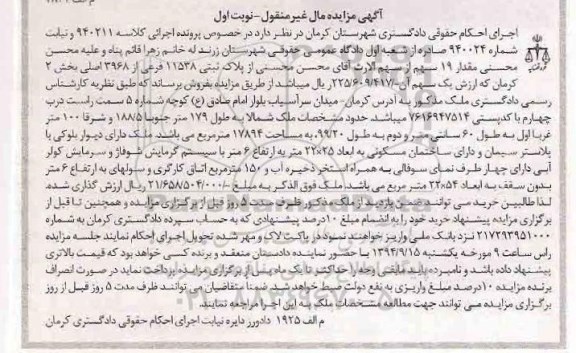 آگهی مزایده مال غیر منقول - نوبت اول
اجرای احکام حقوقی دادگستری شهرستان کرمان در نظر دارد در خصوص پرونده اجرائی کلاسه ۹۴۰۲۱۱ و نیابت
شماره ۹۴۰۰۲۴ صادره از شعبه اول دادگاه عمومی حقوقی شهرستان زرند له خانم زهرا قائم پناه و علیه محسن
محسنی مقدار ۱۹ سهم از سهم الارث آقای محسن محسنی از پلاک ثبتی ۱۱۵۳۸ فرعی از ۳۹۶۸ اصلی بخش ۲
کرمان که ارزش یک سهم آن ۲۲۵/۶۰۹/۴۱۷/- ریال میباشد از طریق مزایده بفروش برساند که طبق نظریه کارشناس
رسمی دادگستری ملک مذکور به آدرس کرمان- میدان سرآسیاب بلوار امام صادق (ع) کوچه شماره ۵ سمت راست درب
چهارم با کدپستی ۷۶۱۶۹۴۷۵۱۴ میباشد. حدود مشخصات ملک شمالا به طول ۱۷۹ متر جنوبا ۱۸۸/۵ و شرقا ۱۰۰ متر
غربا اول به طول ۶۰ سانتی متر و دوم به طول ۹۹/۲۰ به مساحت ۱۷۸۹۴ مترمربع می باشد. ملک دارای دیوار بلوکی با
پلاستر سیمان و دارای ساختمان مسکونی به ابعاد ۲۵×۲۲ متر به ارتفاع ۶ متر با سیستم گرمایش شوفاژ و سرمایش کولر
آبی دارای چهار طرف نمای سوفالی به همراه استخر ذخیره آب و ۱۵۰ مترمربع اتاق کارگری و سولهای به ارتفاع ۶ متر
بدون سقف به ابعاد ۵۴×۲۲ متر مربع می باشد. ملک فوق الذکر به مبلغ ۲۱/۶۵۸/۵۰۴/۰۰۰/- ریال ارزش گذاری شده.
لذا طالبین خرید می توانند ضمن بازدید از ملک مذکور ظرف مدت ۵ روز قبل از برگزاری مزایده و همچنین تا قبل از
برگزاری مزایده پیشنهاد خرید خود را به انضمام مبلغ ۱۰ درصد پیشنهادی که به حساب سپرده دادگستری کرمان به شماره
۲۱۷۲۹۳۹۵۱۰۰۰ نزد بانک ملی واریز خواهند نمود در پاکت لاک و مهر شده تحویل اجرای احکام نمایند جلسه مزایده
راس ساعت ۹ مورخه یکشنبه ۱۳۹۴/۹/۱۵ با حضور نماینده دادستان منعقد و برنده کسی خواهد بود که قیمت بالاتری
پیشنهاد داده باشد و نامبرده باید مابقی وجه را حداکثر تا یک ماه پس از برگزاری مزایده پرداخت نماید در صورت انصراف
برنده مزایده ۱۰ درصد مبلغ واریزی به نفع دولت ضبط خواهد شد. ضمنا متقاضیان می توانند ظرف مدت ۵ روز قبل از روز
برگزاری مزایده می توانند جهت مطالعه مشخصات ملک به این اجرا مراجعه نمایند.
م الف ۱۹۲۵ دادورز دایره نیابت اجرای احکام حقوقی دادگستری کرمان